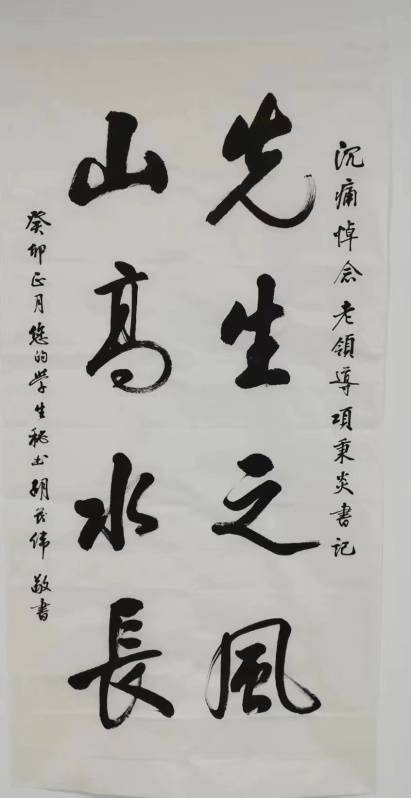 沉痛悼念老領導項秉炎書记
先生之風
山高水長
癸卯正月您的学生秘书胡茂伟敬書